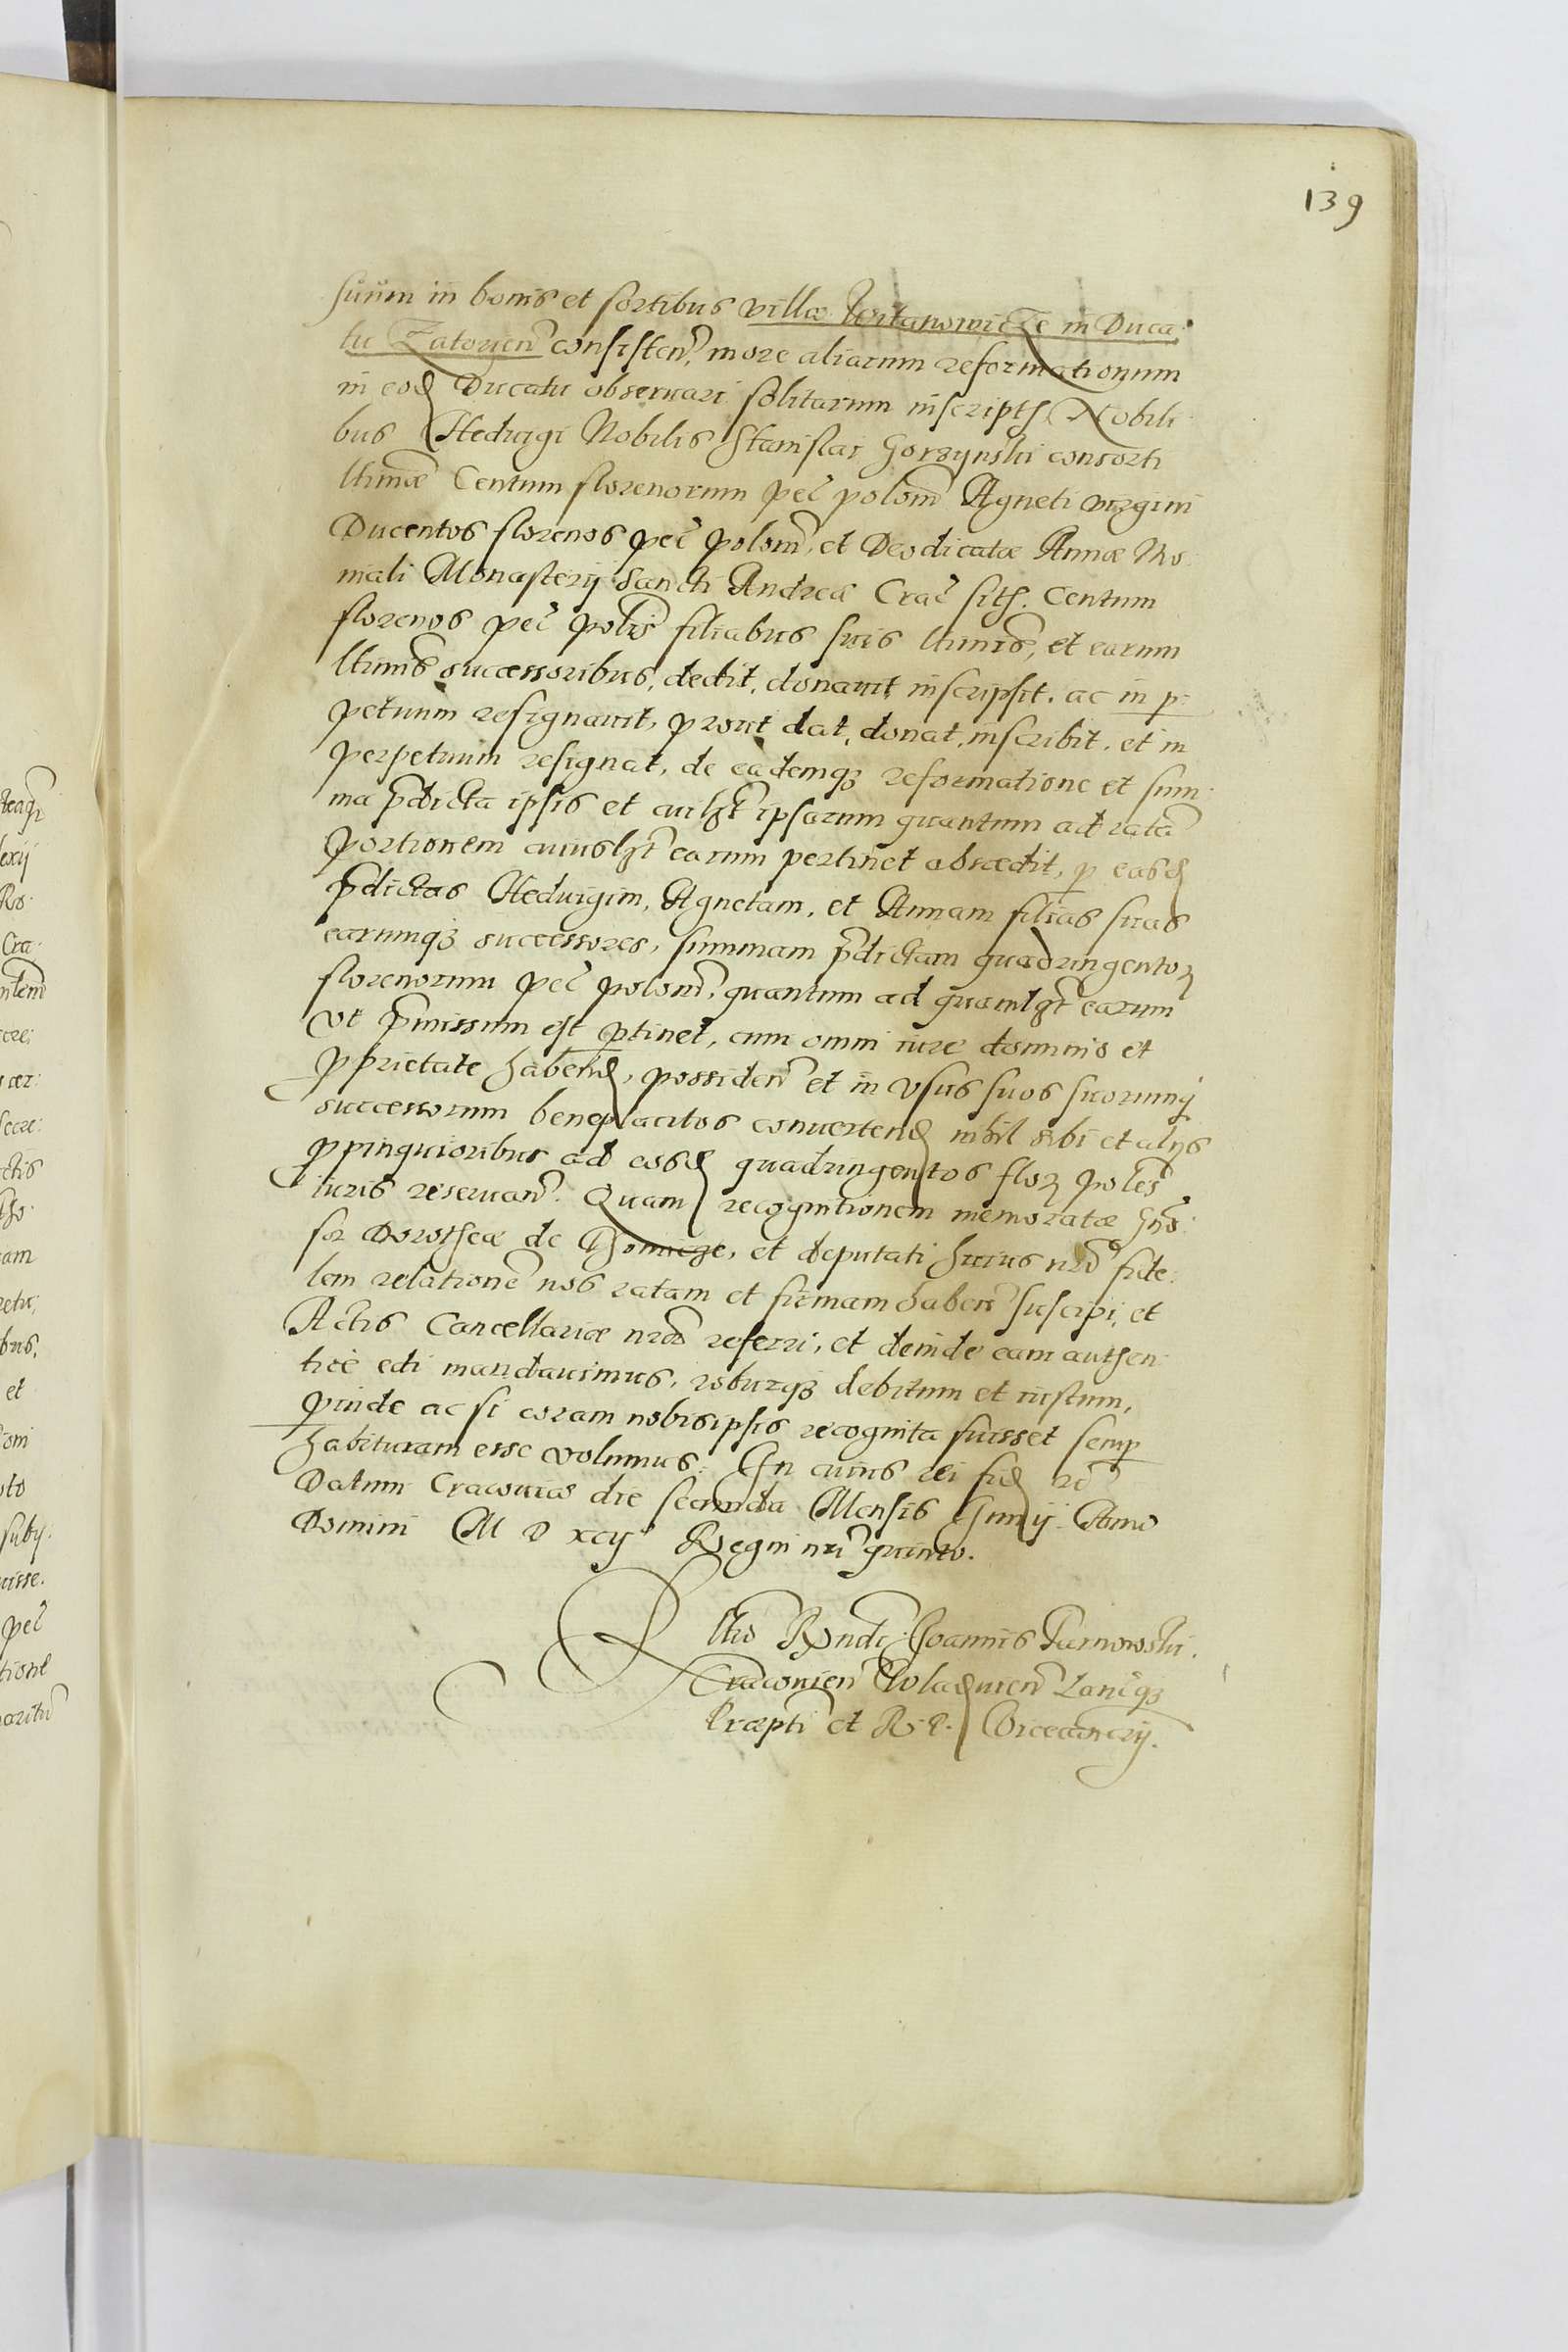 139
suum in bonis et sortibus villæ Witanowicze in Duca
tu Zatorien̄ consisten̄, more aliarum reformationum
in eod Ducatu obseruari solitarum inscripts Nobili
bus Heduigi Nobilis Stanislai Gorzynski consorti
ltimæ Centum florenorum pec̄ polon̄ Agneti virgini
Ducentos florenos pec̄ polon̄, et Deodicatæ Annæ Mo
niali Monasterij Sancti Andreæ Crac̄ sits. Centum
florenos pec̄ polis filiabus suis ltimis, et earum
ltimis successoribus, dedit, donauit inscripsit. ac in p
petuum resignauit, prout dat, donat, inscribit. et in
perpetuum resignat, de eademq3 reformatione et sum
ma p̄dicta ipsis et cuilzt ipsarum quantum ad ratā
portionem cuiuslzt earum pertinet abscedit, p easd
p̄dictas Heduigim, Agnetam, et Annam filias suas
earumq3 successores, summam p̄dictam quadringentor
florenorum pec̄ polon̄, quantum ad quamlzt earum
vt p̄missum est ptinet, cum omni iure dominio et
pprietate habend, possiden̄ et in vsus suos suorumq
successorum beneplacitos conuertend nihil sibi et alijs
ppinquioribus ad eosd quadringentos flor poles
iuris reseruan̄. Quam recognitionem memoratæ Gn̄o
sæ Dorotheæ de, et deputati huius nrī fide
lem relationē nos ratam et firmam haben̄ suscipi, et
Actis Cancellariæ nræ referri, et deinde eam authen
tice edi mandauimus, roburq3 debitum et iustum,
pinde ac si coram nobisipsis recognita fuisset semp
habituram esse volumus. In cuius rei fid
Datum Cracouiæ die secunda Mensis Junij Anno
Domini M D xcij Regni nrī quinto.
Rltio Rndi Joannis Tarnowski.
Cracouien̄ Wladauien̄ Lanciq3
Præpti et R. P. Vicecancrij.